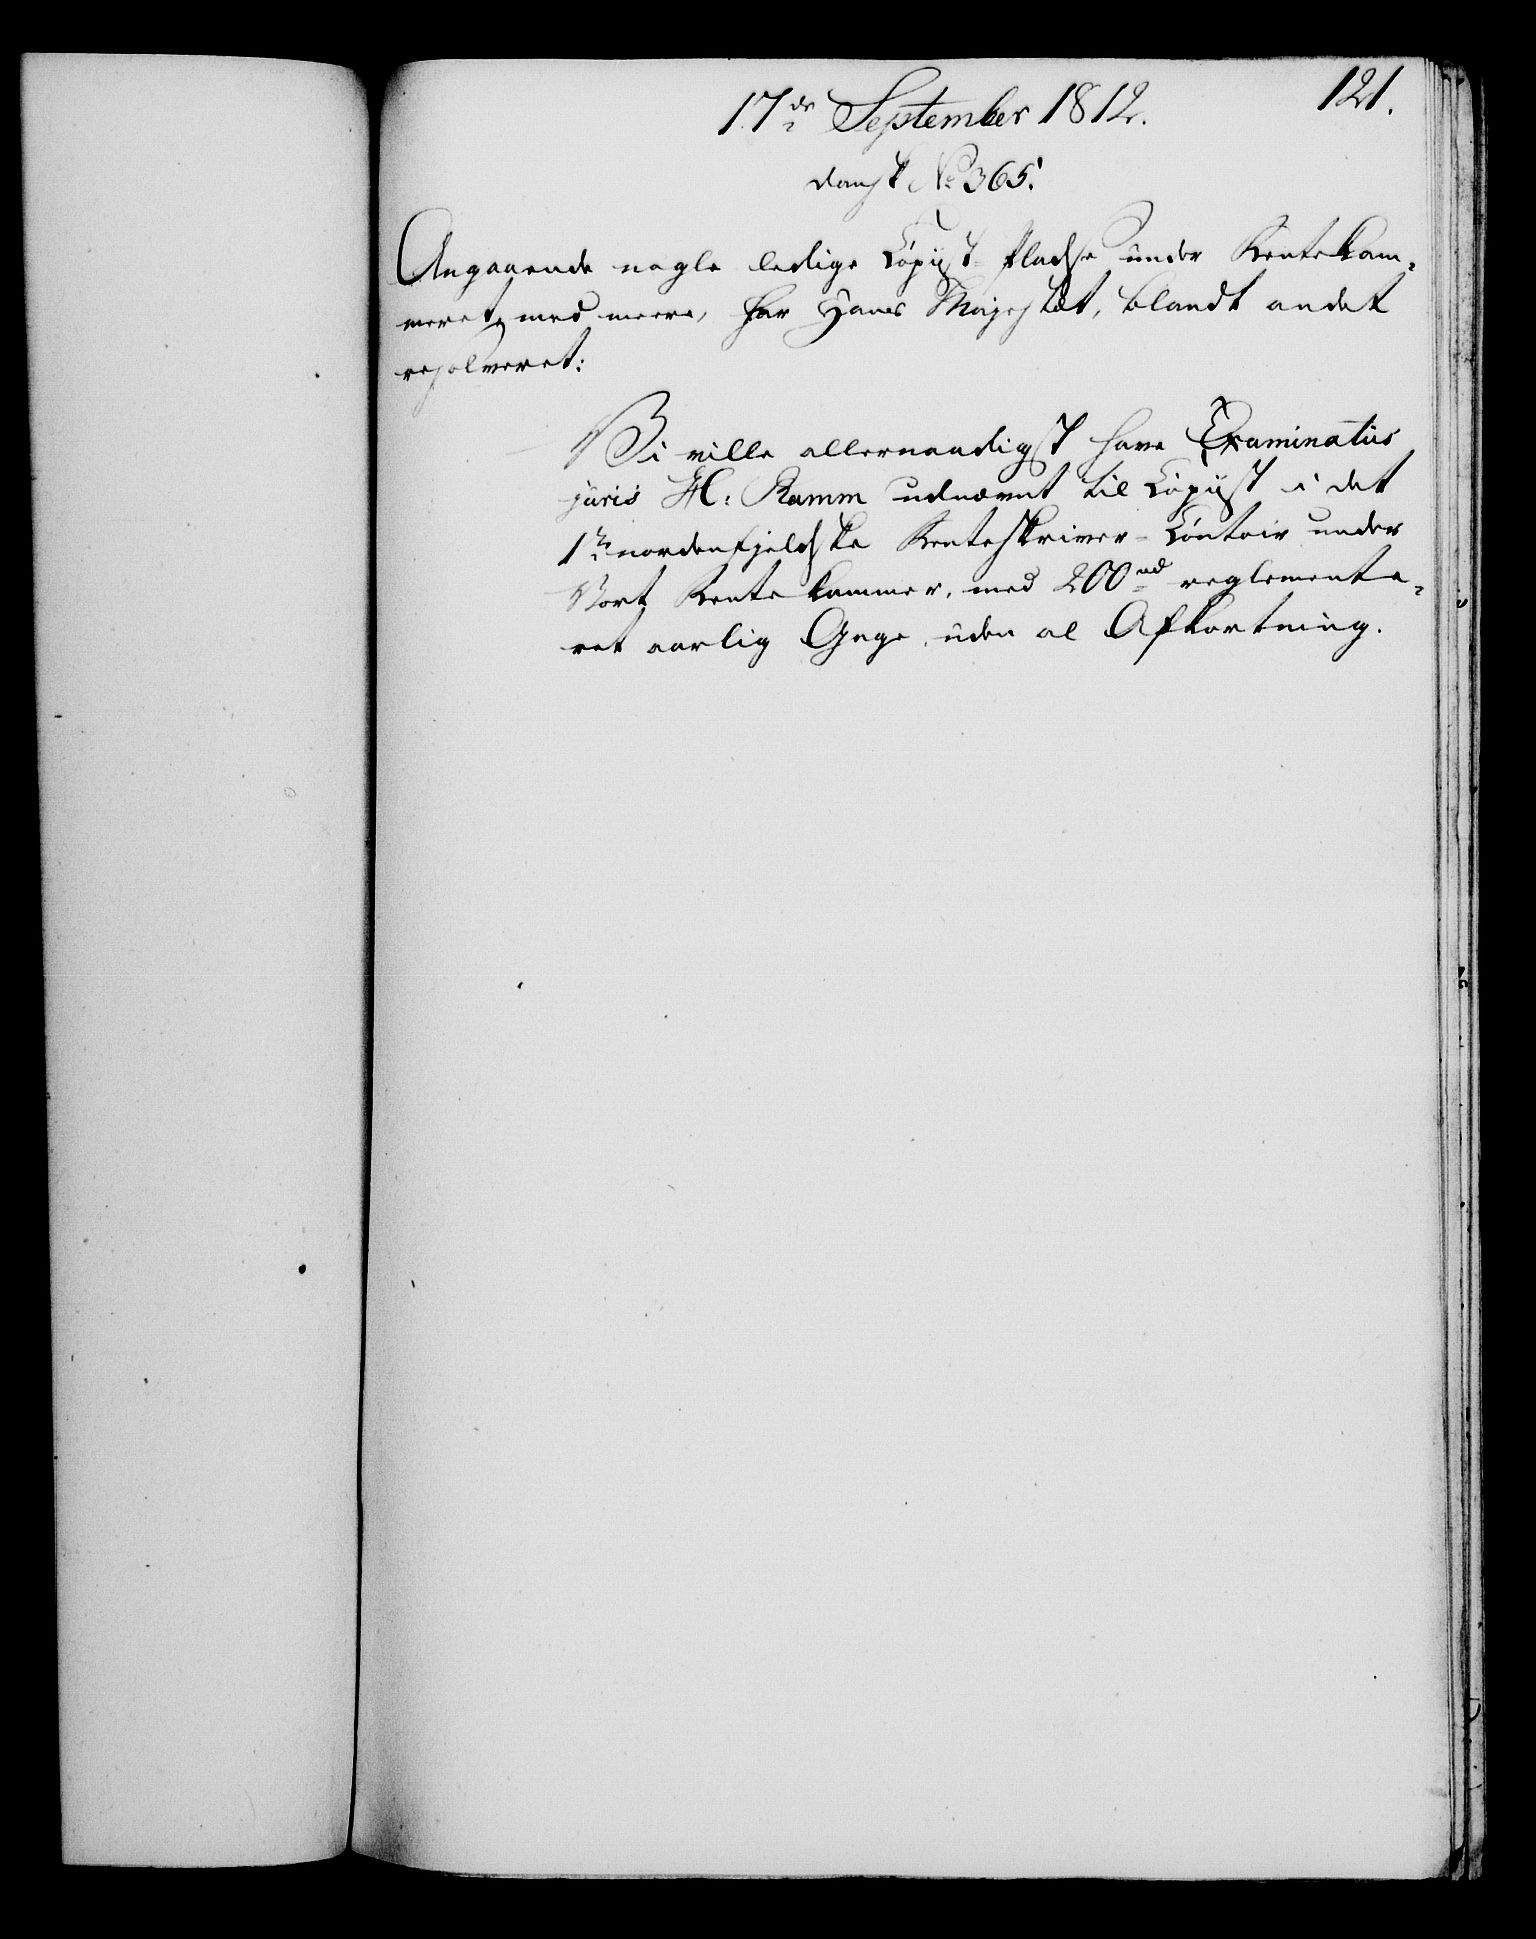 121.
17de September 1812.
dansk No 365.
Angaaende nogle ledige Copiist-Pladse under Rentekam-
meret, med meere, har Hans Majestæt, blandt andet
resolveret:
Vi ville allernaadigst have Examinatus
juris H: Ramm udnævnt til Copiist i det
1te nordenfjeldske Renteskriver-Contoir under
Vort Rentekammer, med 200 rd reglemente-
ret aarlig Gage, uden al Afkortning.